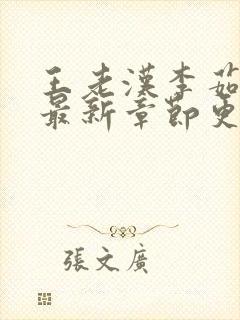 王老漢李茹
最新章節更
張文廣